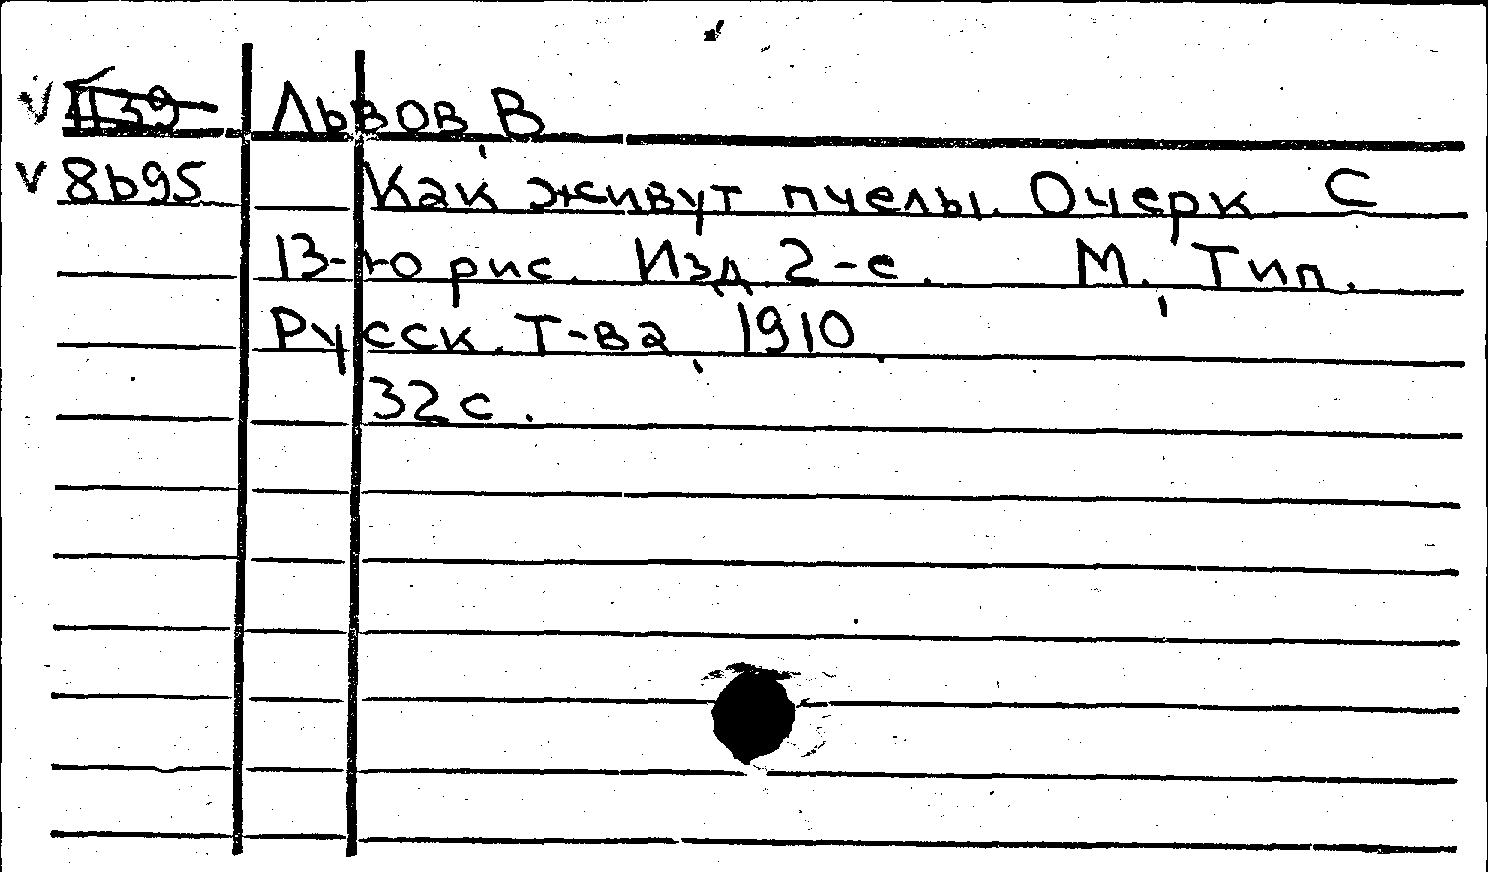 Львов, В
8b95 Как живут пчелы. Очерк С
13-ю рис. Изд. 2-е. М., Тип.
Русск. Т-ва, 1910.
32 с.